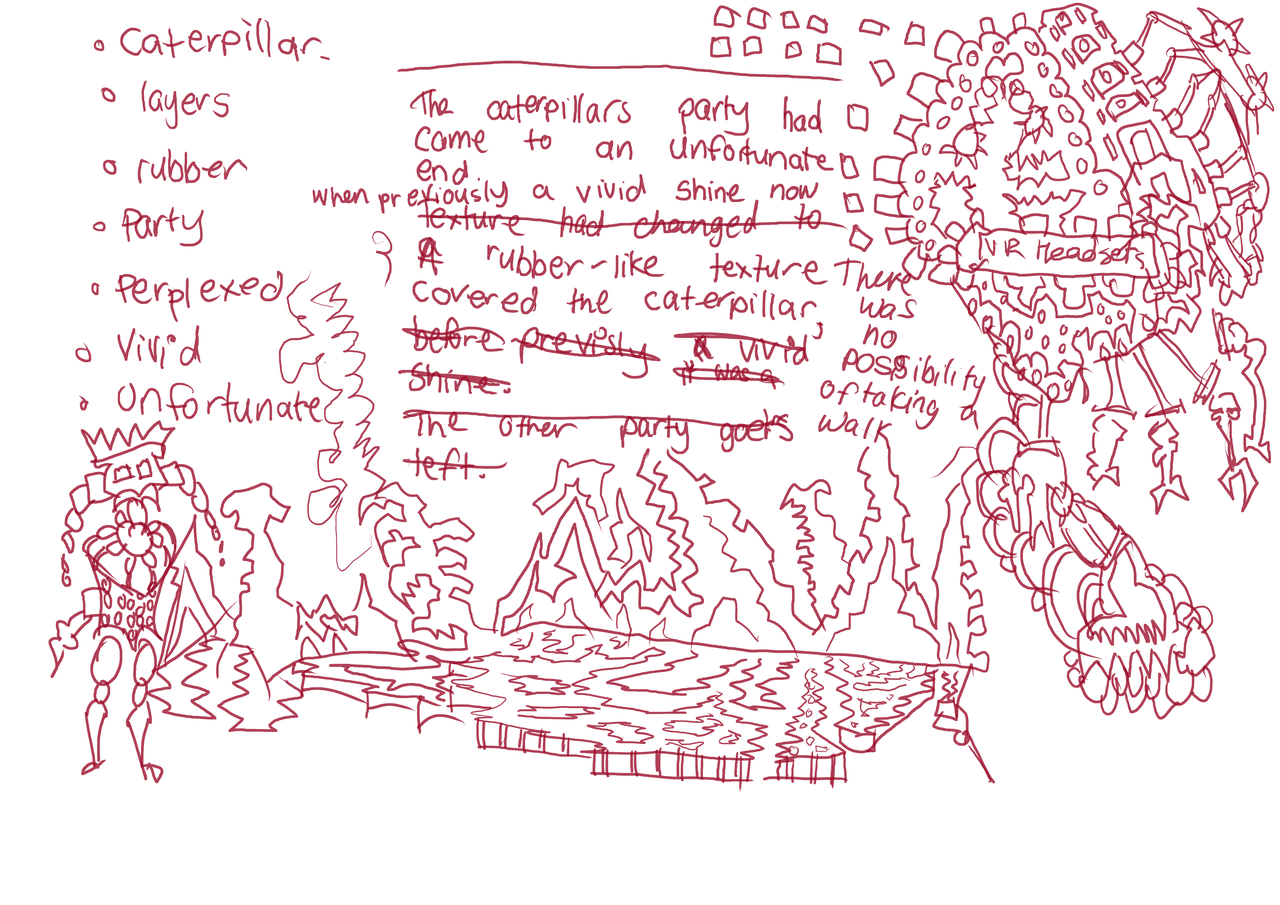 caterpillar.
layers
rubber
Party
Perplexed
Vivid
Unfortunate
The caterpillars party had
come to an unfortunate
end.
when previously a vivid shine now
Texture had changed to
A rubber-like texture
covered the caterpillar
before previsly a vivid
it was a
shine.
The other party goers
left.
There
was
no
possibility
of taking a
walk
VR Headsets